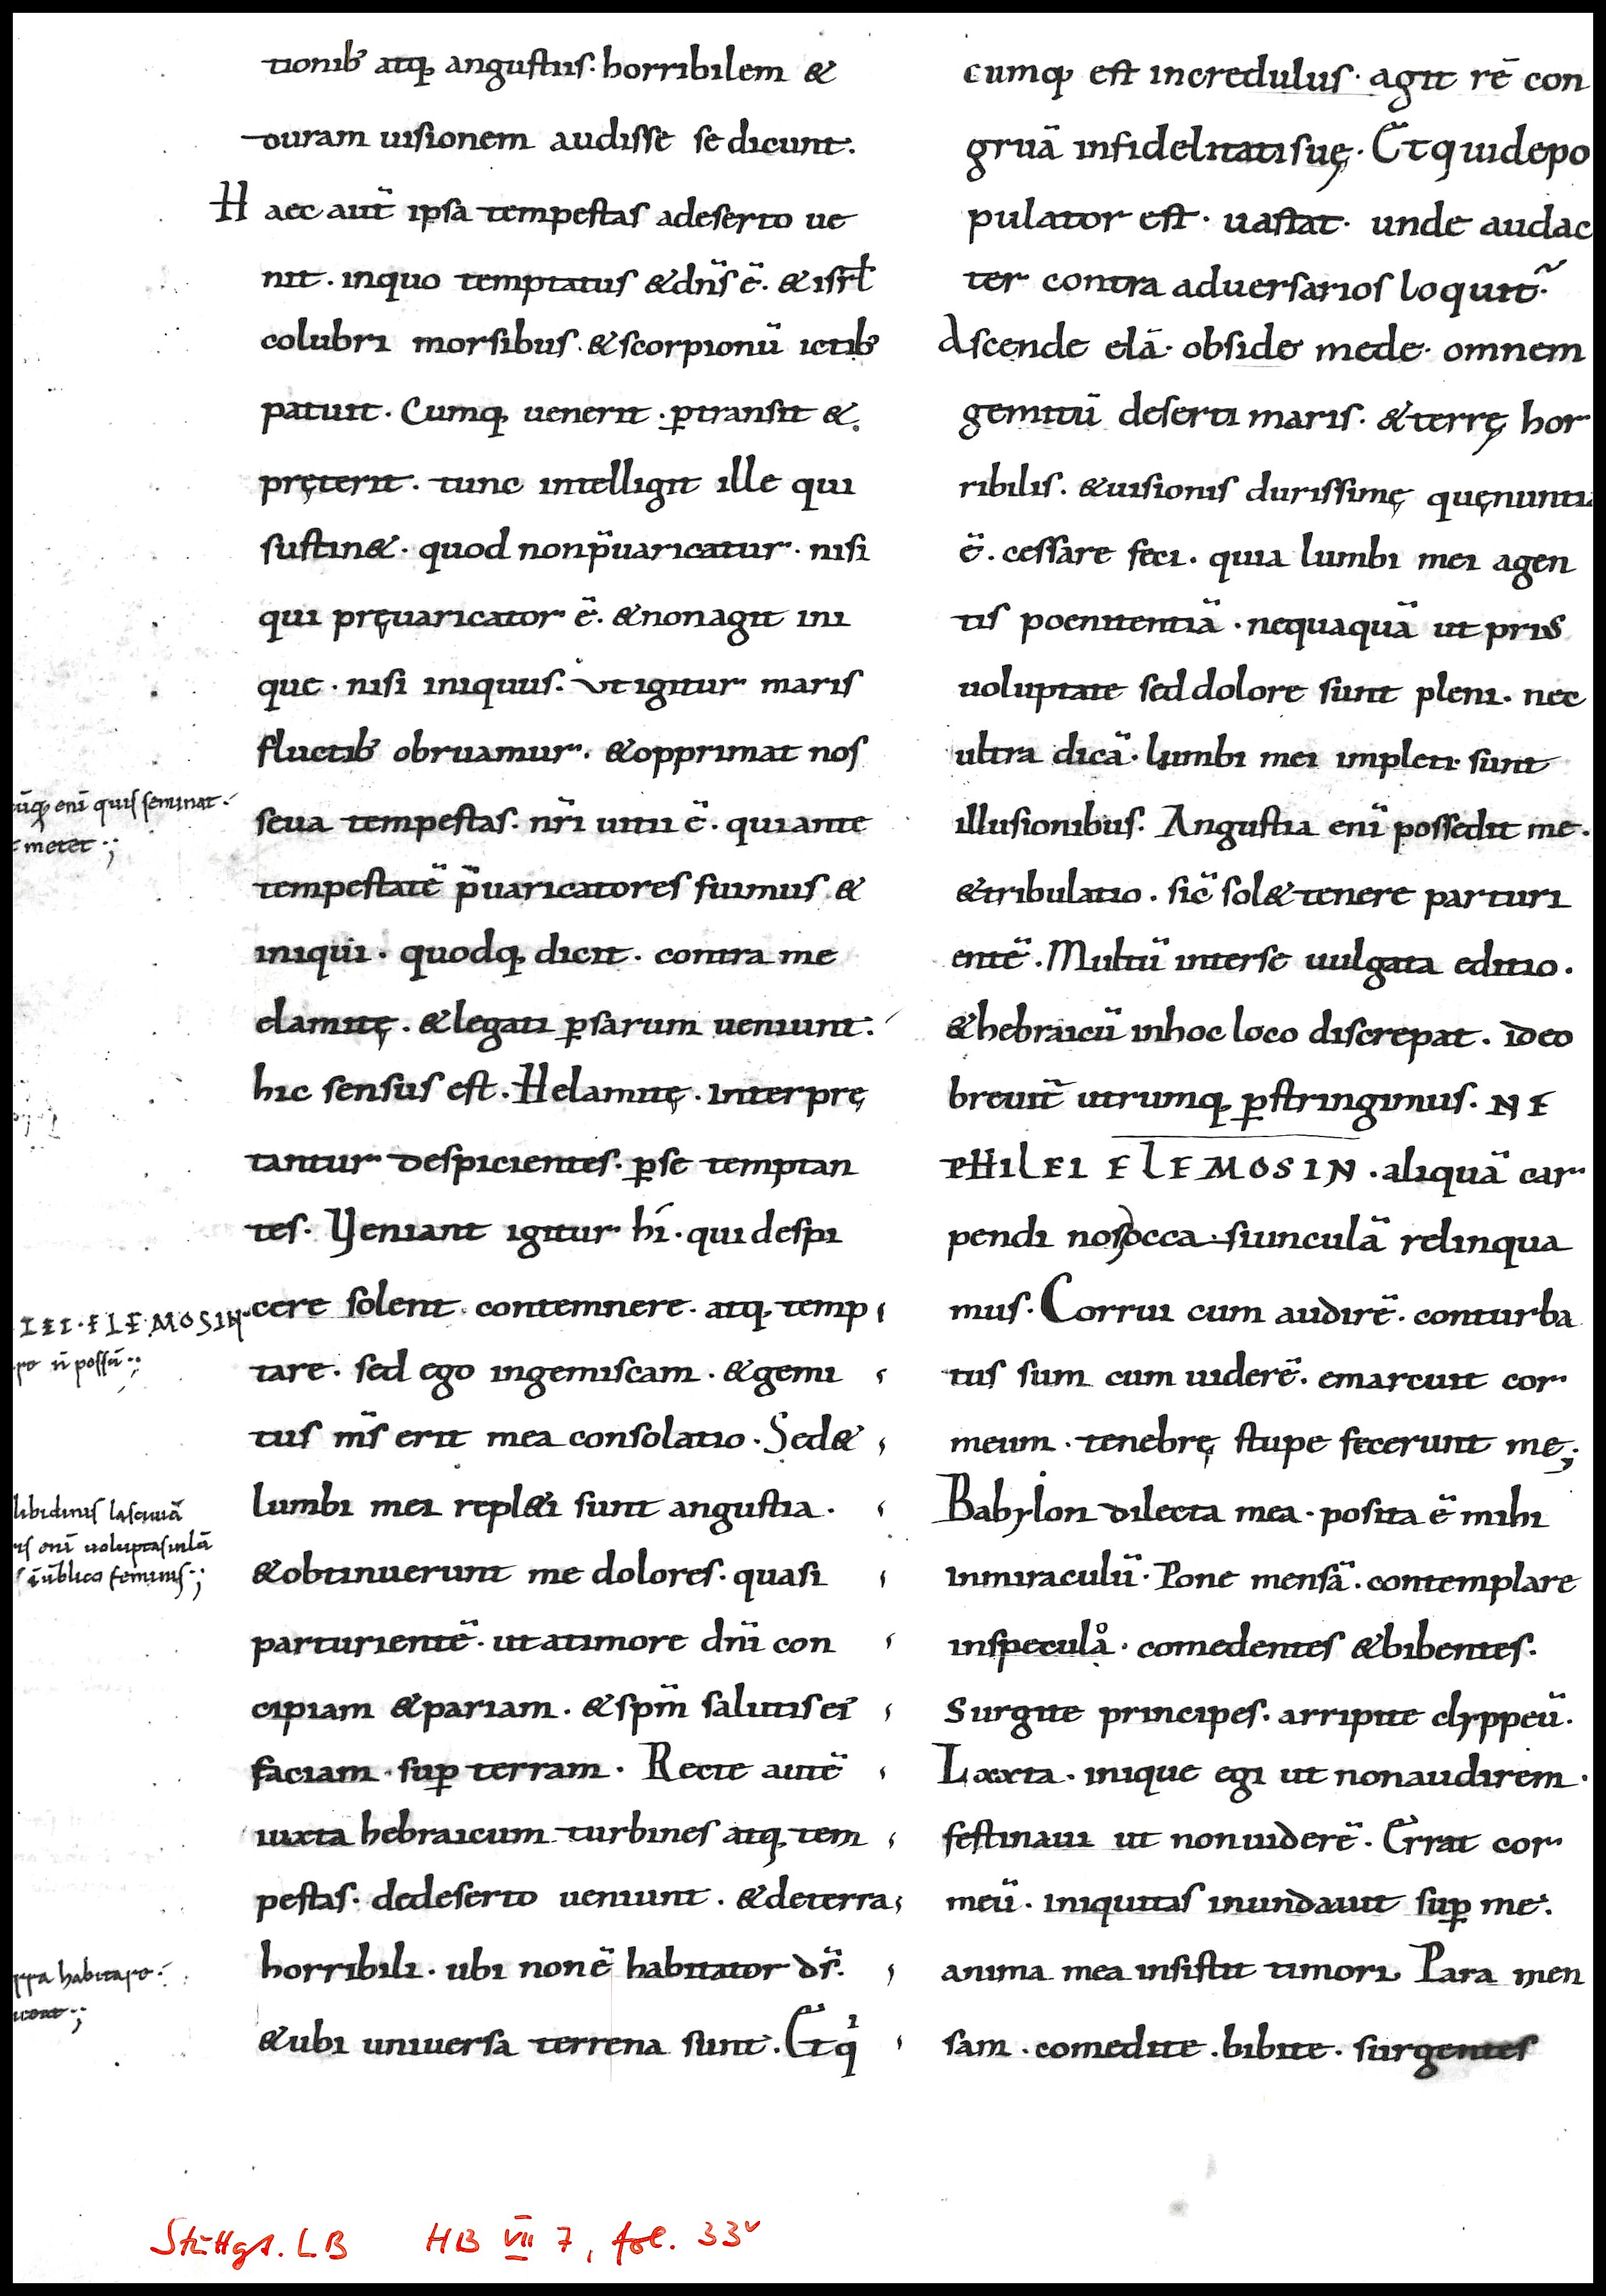 tionib; atq; angustiis· horribilem &
duram uisionem audisse se dicunt:
Haec aut̄ ipsa tempestas adeserto ue
nit· inquo temptatus & dn̄s ē· & isrl̄
colubri morsibus· & scorpionū ictib;
patuit· Cumq; uenerit· p̱transit &
pręterit· tunc intelligit ille qui
sustin&· quod nonp̄uaricatur· nisi
qui pręuaricator ē· & nonagit ini
que· nisi iniquus· Vt igitur maris
fluctib; obruamur· & opprimat nos
seua tempestas· nr̄i uitii ē· quiante
tempestatē p̄uaricatores fuimus &
iniqui· quodq; dicit· contra me
elamitę· & legati p̱sarum ueniunt:
hic sensus est· Helamitę· interprę
tantur despicientes· p̱se temptan
tes· Veniant igitur hí· qui despi
cere solent· contemnere· atq; temp
tare· sed ego ingemiscam· & gemi
tus m̄s erit mea consolatio· Sed &
lumbi mei repl&i sunt angustia·
& obtinuerunt me dolores· quasi
parturientē· ut atimore dn̄i con
cipiam & pariam· & sp̄m salutis ei
faciam· sup̱ terram· Recte autē
iuxta hebraicum turbines atq; tem
pestas· dedeserto ueniunt· & deterra
horribili· ubi nonē habitator dr̄·
& ubi uniuersa terrena sunt· Et qi
cumq; est incredulus· agit rē con
gruā infidelitati suę· Et quidepo
pulator est· uastat· unde audac
ter contra aduersarios loquit̃·
Ascende elā· obside mede· omnem
gemitū deserti maris· & terrę hor
ribilis· & uisionis durissimę quęnunti
ē· cessare feci· quia lumbi mei agen
tis poenitentiā· nequaquā ut prius
uoluptate sed dolore sunt pleni· nec
ultra dicā· lumbi mei impleti sunt
illusionibus· Angustia enī possedit me·
& tribulatio· sic̄ sol& tenere parturi
entē· Multū interse uulgata editio·
& hebraicū inhoc loco discrepat· ideo
breuit̄ utrumq; p̱stringimus· NE
PHILEI ELEMOSIN· aliquā car
pendi nos occasiunculā relinqua
mus· Corrui cum audirē· conturba
tus sum cum uiderē· emarcuit cor
meum· tenebrę stupe fecerunt me;
Babylon dilecta mea· posita ē mihi
inmiraculū· Pone mensā· contemplare
inspecula· comedentes & bibentes·
Surgite principes· arripite clyppeū·
Lxxta· inique egi ut nonaudirem·
festinaui ut nonuiderē· Errat cor
meū· iniquitas inundauit sup̱ me·
anima mea insistit timori Para men
sam· comedite· bibite· surgentes
ūq; enī quis seminat·
metet·;
IEI·ELEMOSIN
ro n̄ possū·;
libidinis lasciuiā
is enī uoluptas inlū
s ī ūblico feminis·;
rra habitare·
Stuttgt. LB HB VII 7, fol. 33v